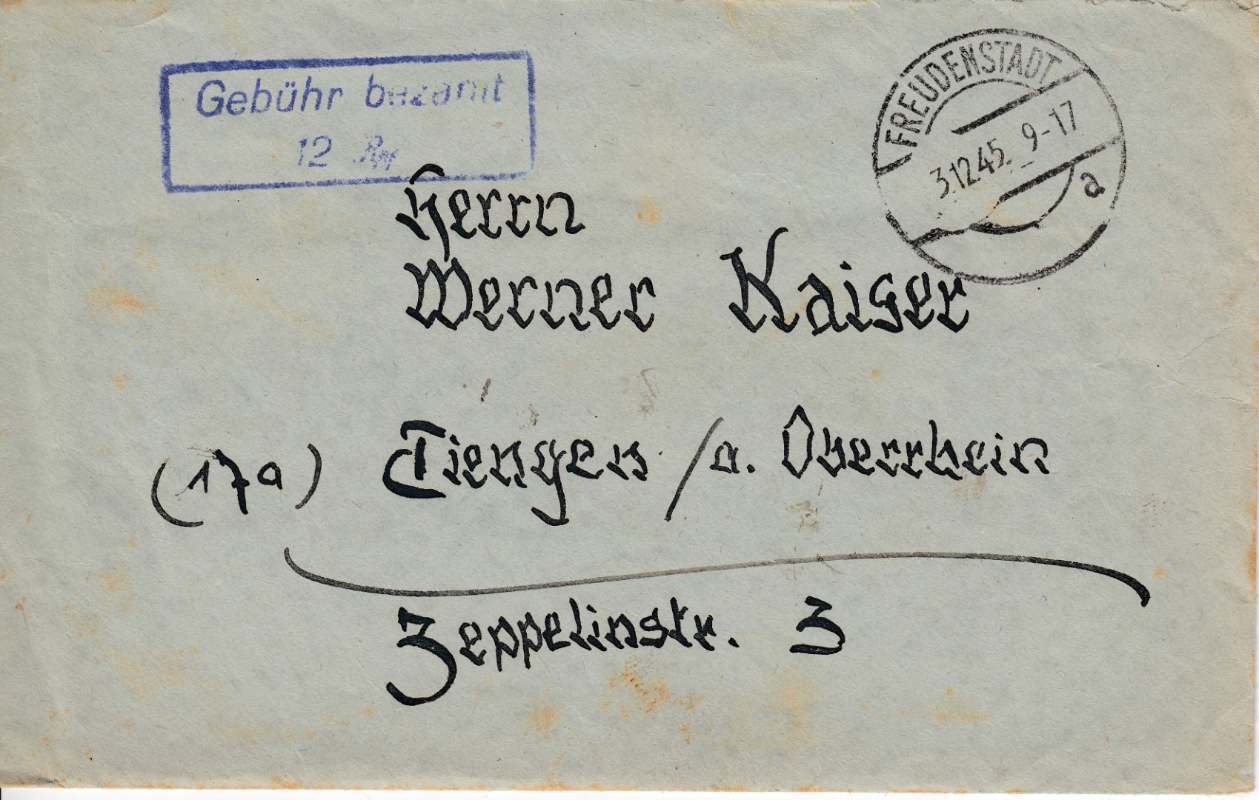 Gebühr bezahlt
12 Rpf
FREUDENSTADT
3.12.45. 9-17
a
Herrn
Werner Kaiser
(17a) Tiengen /a. Oberrhein
Zeppelinstr. 3